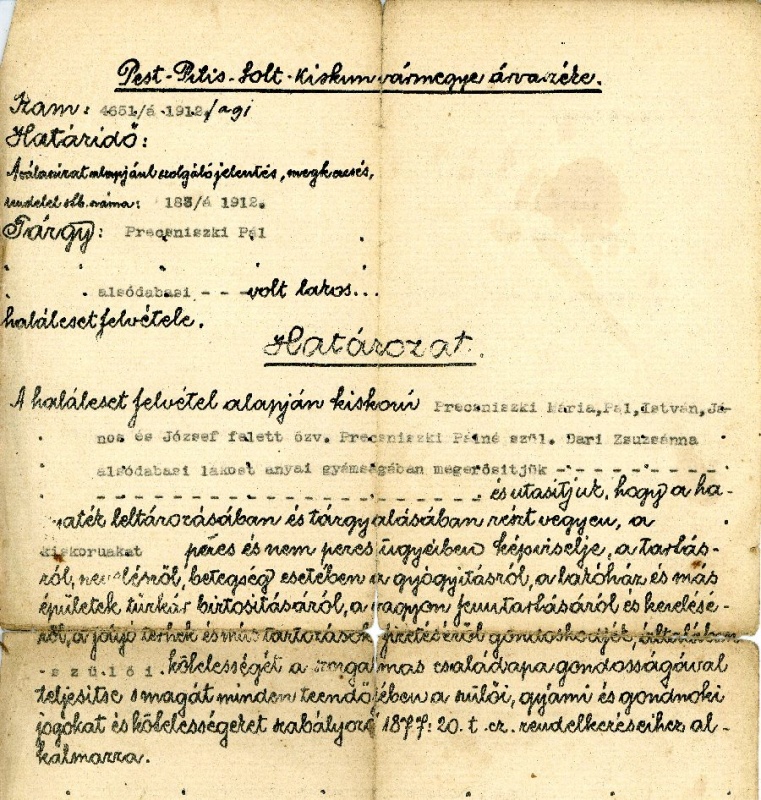 Pest-Pilis-Solt-Kiskun vármegye árvaszéke.
Szám: 4651/á 1912./agi
Határidő:
A válaszirat alapjául szolgáló jelentés, megkeresés,
rendelet stb. száma: 183/á 1912.
Tárgy: Precsniszki Pál
alsódabasi - - - volt lakos...
haláleset felvétele.
Határozat.
A haláleset felvétel alapján kiskorú Precsniszki Mária, Pál, István, Já-
nos és József felett özv. Precsniszki Pálné szül. Dari Zsuzsánna
alsódabasi lakost anyai gyámságában megerősitjük - - - - - - - - - -
- - - - - - - - - - - - - - - - - - - - - és utasitjuk, hogy a ha-
gyaték leltározásában és tárgyalásában részt vegyen, a
kiskoruakat peres és nem peres ügyeiben képviselje, a tartás-
ról, nevelésről, betegség esetében a gyógyitásról, a lakóház és más
épületek tűzkár biztositásáról, a vagyon fenntartásáról és kezelésé-
ről, a folyó terhek és más tartozások fizetéséről gondoskodjék, általában
- szülői. kötelességét a szorgalmas családapa gondosságával
teljesitse s magát minden teendőjében a szülői, gyámi és gondnoki
jogokat és kötelességeket szabályozó 1877: 20. t. cz. rendelkezéseihez al-
kalmazza.